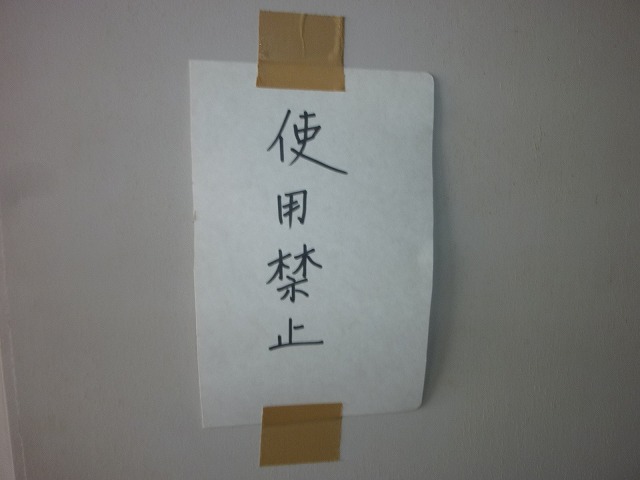 使用禁止